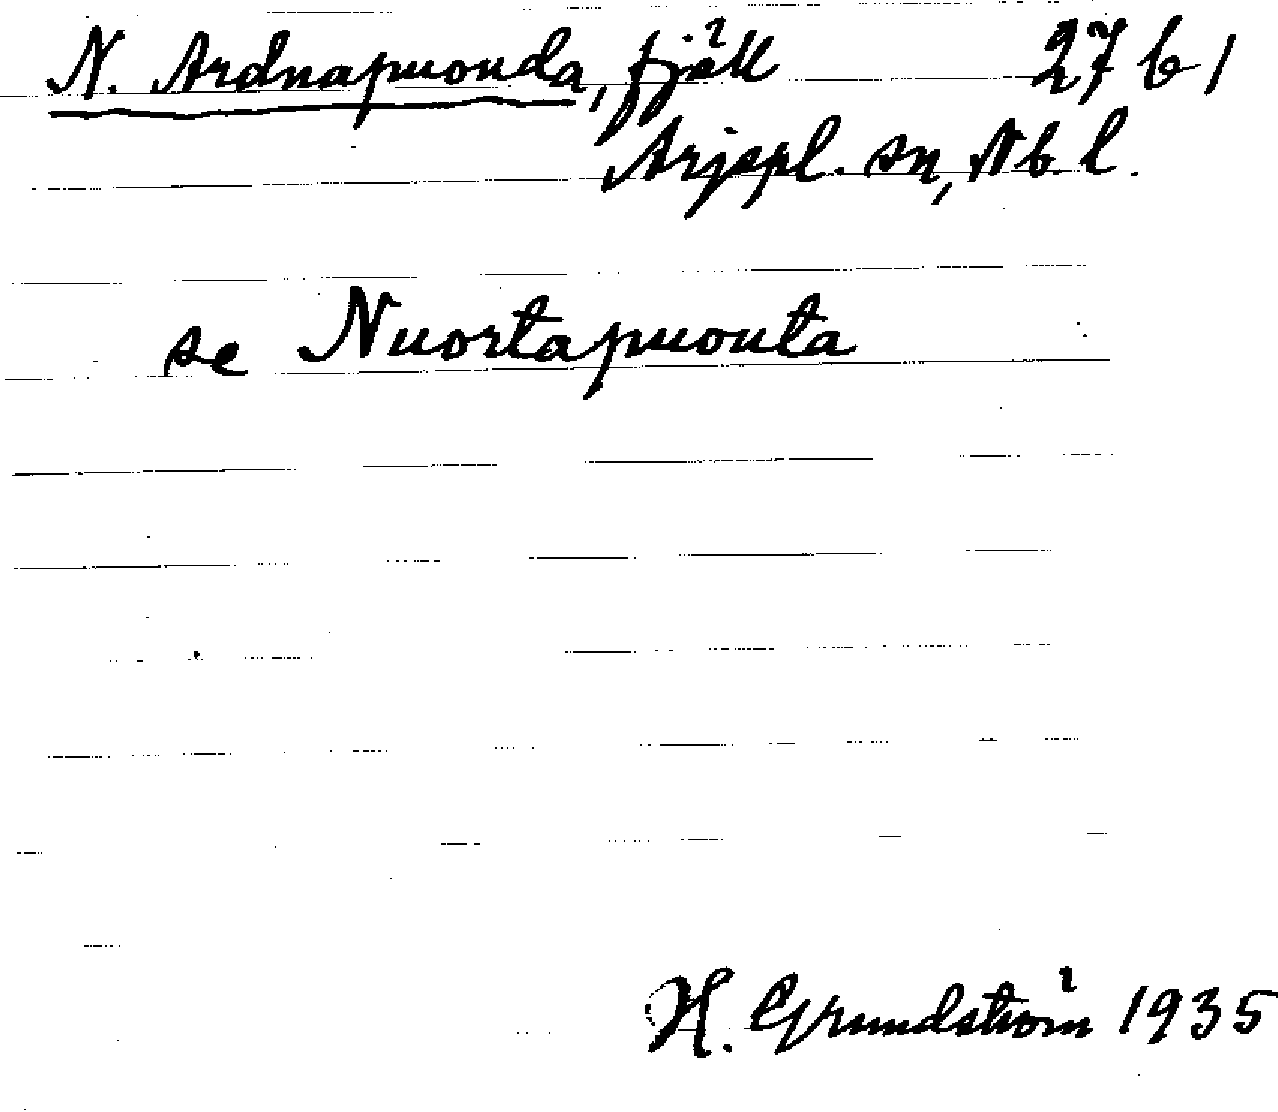 N. Ardnapuonda, fjäll 27 b 1
Arjepl. sn, Nb. l.
se Nuortapuouta
H. Grundström 1935